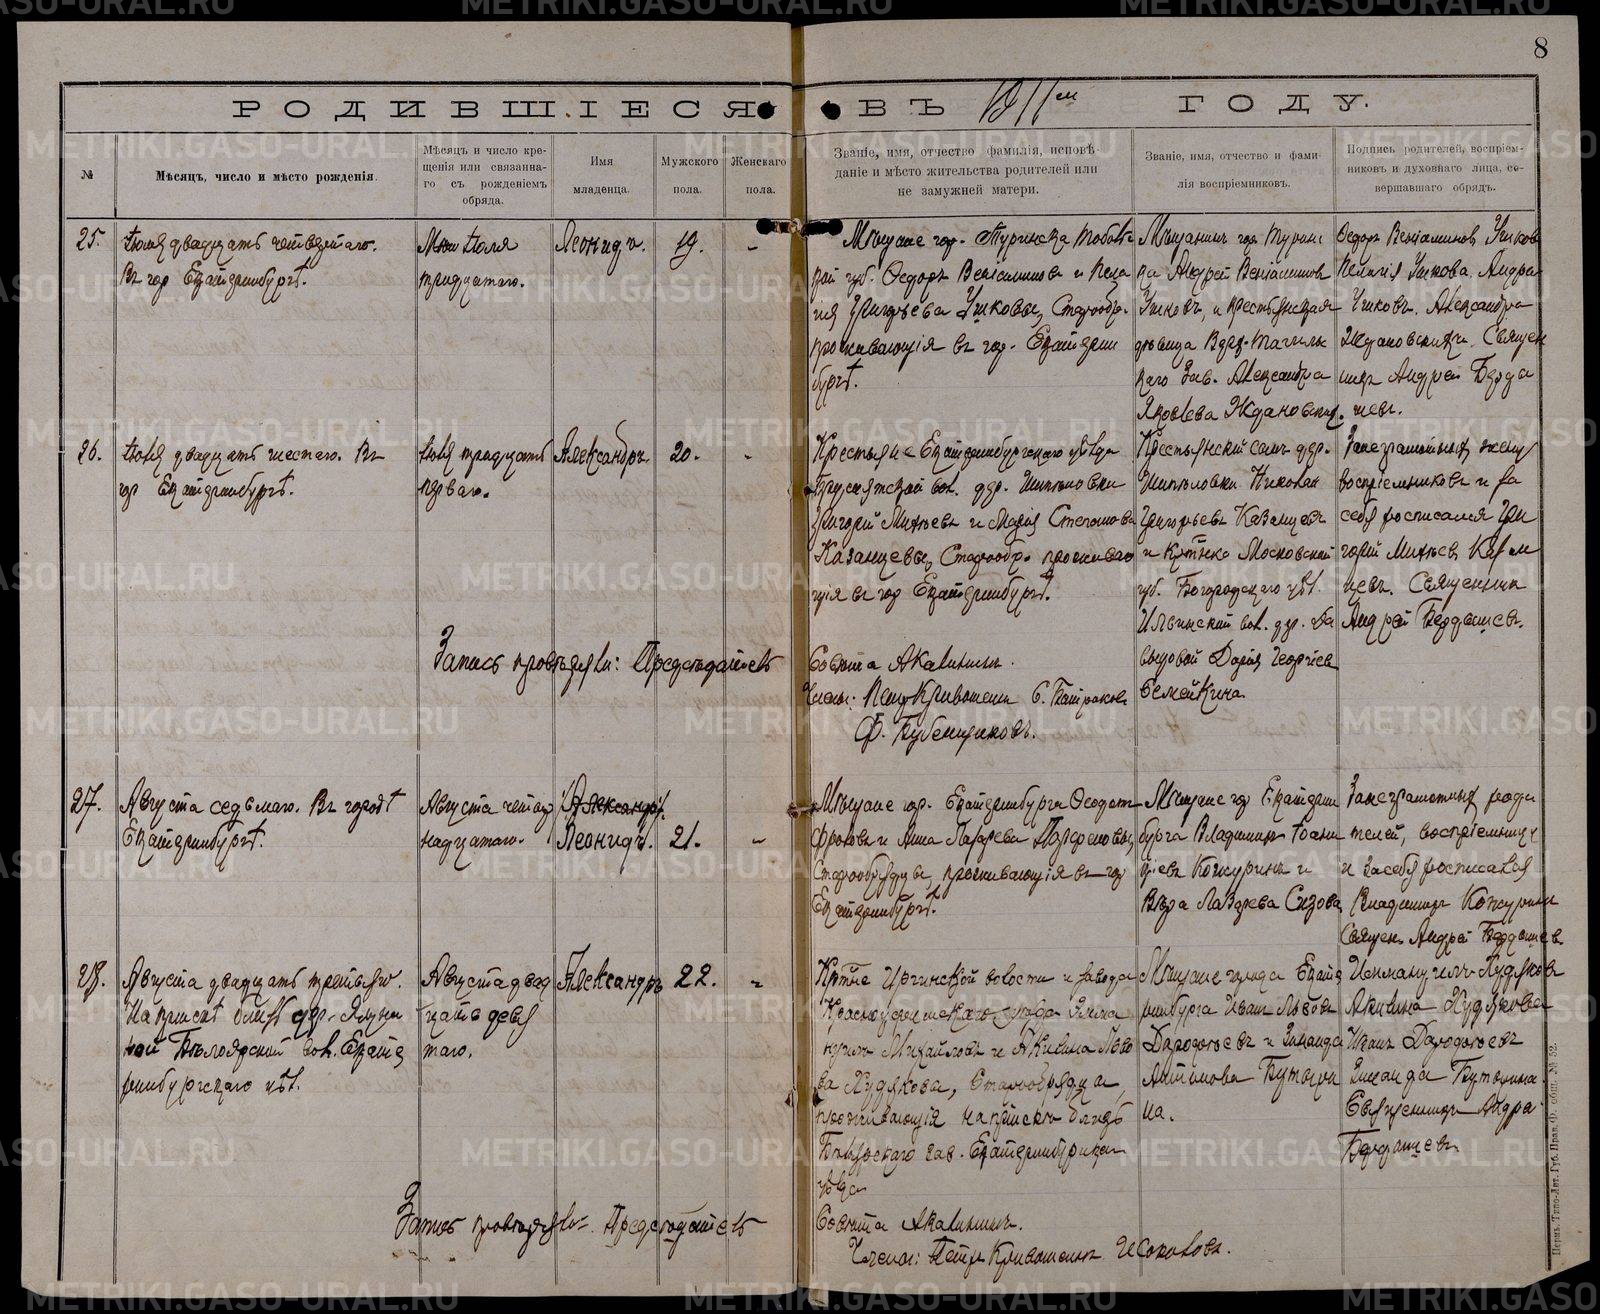 8
РОДИВШІЕСЯ ВЪ 1911ᵐ ГОДУ.
№
Мѣсяцъ, число и мѣсто рожденія.
Мѣсяцъ и число кре-
щенія или связанна-
го съ рожденіемъ
обряда.
Имя
младенца.
Мужского
пола.
Женскаго
пола.
Званіе, имя, отчество фамилія, исповѣ-
даніе и мѣсто жительства родителей или
не замужней матери.
Званіе, имя, отчество и фами-
лія воспріемниковъ.
Подпись родителей, воспріем-
никовъ и духовнаго лица, со-
вершавшаго обрядъ.
25.
Іюля двадцать четвертаго.
Въ гор Екатеринбургѣ.
Іюля
тридцатаго.
Леонидъ.
19.
-
Мѣщане гор. Туринска Тоболь
кой губ. Ѳедоръ Веніаминовъ и Пела
гія Григорьева Ушковы, Старообр.
проживающія въ гор. Екатерин
бургѣ.
Мѣщанинъ гор Турин
ка Андрей Веніаминов
Ушковъ, и крестьянская
дѣвица Тагиль
каго Зав. Александра
Яковлева Ждановских.
Ѳедоръ Веніаминов Ушков
Пелагія Ушкова. Андрей
Ушковъ. Александра
Ждановскихъ. Священ
никъ Андрей Берды
шевъ.
26.
Іюля двадцать шестаго. Въ
гор Екатеринбургѣ.
Іюля тридцать
перваго.
Александръ
20.
-
Крестьяне Екатеринбургскаго уѣзда
вол. дер. Шипѣловки
Григорій Михѣевъ и Марія Степанова
Казанцевы, Старообр. проживаю
щія въ гор Екатеринбургѣ.
Крестьянскій сынъ дер.
Шипѣловки Николай
Григорьевъ Казанцевъ
и Кр-тнка Московской
губ. Богородскаго уѣз.
Ильинской вол. дер. Да
выдовой Дарія Георгіев
Семейкина
За неграмотных
воспріемниковъ и за
себя росписался Гри
горій Михѣев Казан
цевъ. Священник
Андрей Бердышевъ.
Запись провѣряли: Предсѣдатель
Совѣта А Калининъ.
Члены: Петр Кривошеин С. Батраков
Ф. Бубенщиковъ.
27.
Августа седьмаго. Въ городѣ
Екатеринбургѣ.
Августа четыр
надцатаго.
(Александръ).
Леонидъ.
21.
-
Мѣщане гор. Екатеринбурга Ѳеодотъ
Фроловъ и Анна Парфеновы,
Старообрядцы, проживающія въ гор
Екатеринбургѣ.
Мѣщане гор Екатерин
бурга Владимиръ Іоанн
кіевъ Кожуринъ и
Вѣра Лазарева Сизова
За неграмотных роди
телей, воспріемницу
и за себя росписался
Владимиръ Кожуринъ
Священ. Андрей Бердышев
28.
Августа двадцать третьяго.
На пріискѣ близъ дер. Ялуни
ной Бѣлоярской вол. Екате
ринбургскаго уѣз.
Августа двад
цать девя
таго.
Александръ
22.
-
Кр-тне Иргинской волости и завода
Красноуфимскаго уѣзда Емма
нуилъ Михайловъ и Акилина Льво
ва Худякова, Старообрядцы,
проживающія на пріискѣ близъ
зав. Екатеринбургскаго
уѣзда
Мѣщане города Екате
ринбурга Иванъ Львовъ
Дародатьевъ и Зинаида
Антипова Бутыри
на.
Еммануилъ Худяков
Акилина Худякова
Иванъ Дародатьевъ
Зинаида Бутырина
Священникъ Андрей
Бердышевъ
Запись провѣряли: Предсѣдатель
Совѣта А Калининъ.
Члены: Петръ Кривошеинъ И Соколовъ.
Пермь. Типо-Лит. Губ. Прав. О. общ. № 52.
METRIKI.GASO-URAL.RU